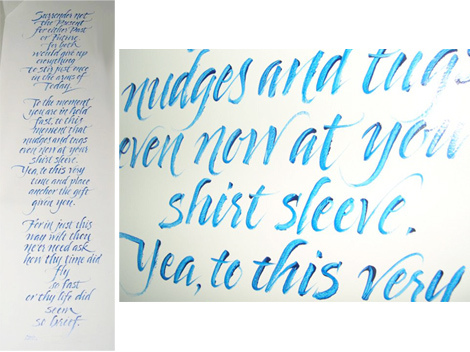 Surrender not
the Present
for either Past
or Future
for both
would give up
everything
to stir just once
in the arms of
Today.
To the moment
you are in hold
fast, to this
moment that
nudges and tugs
even now at your
shirt sleeve.
Yea, to this very
time and place
anchor the gift
given you.
For in just this
way wilt thou
never need ask
how thy time did
fly
so fast
or thy life did
seem
so brief.
nudges and tugs
even now at you
shirt sleeve.
Yea, to this very